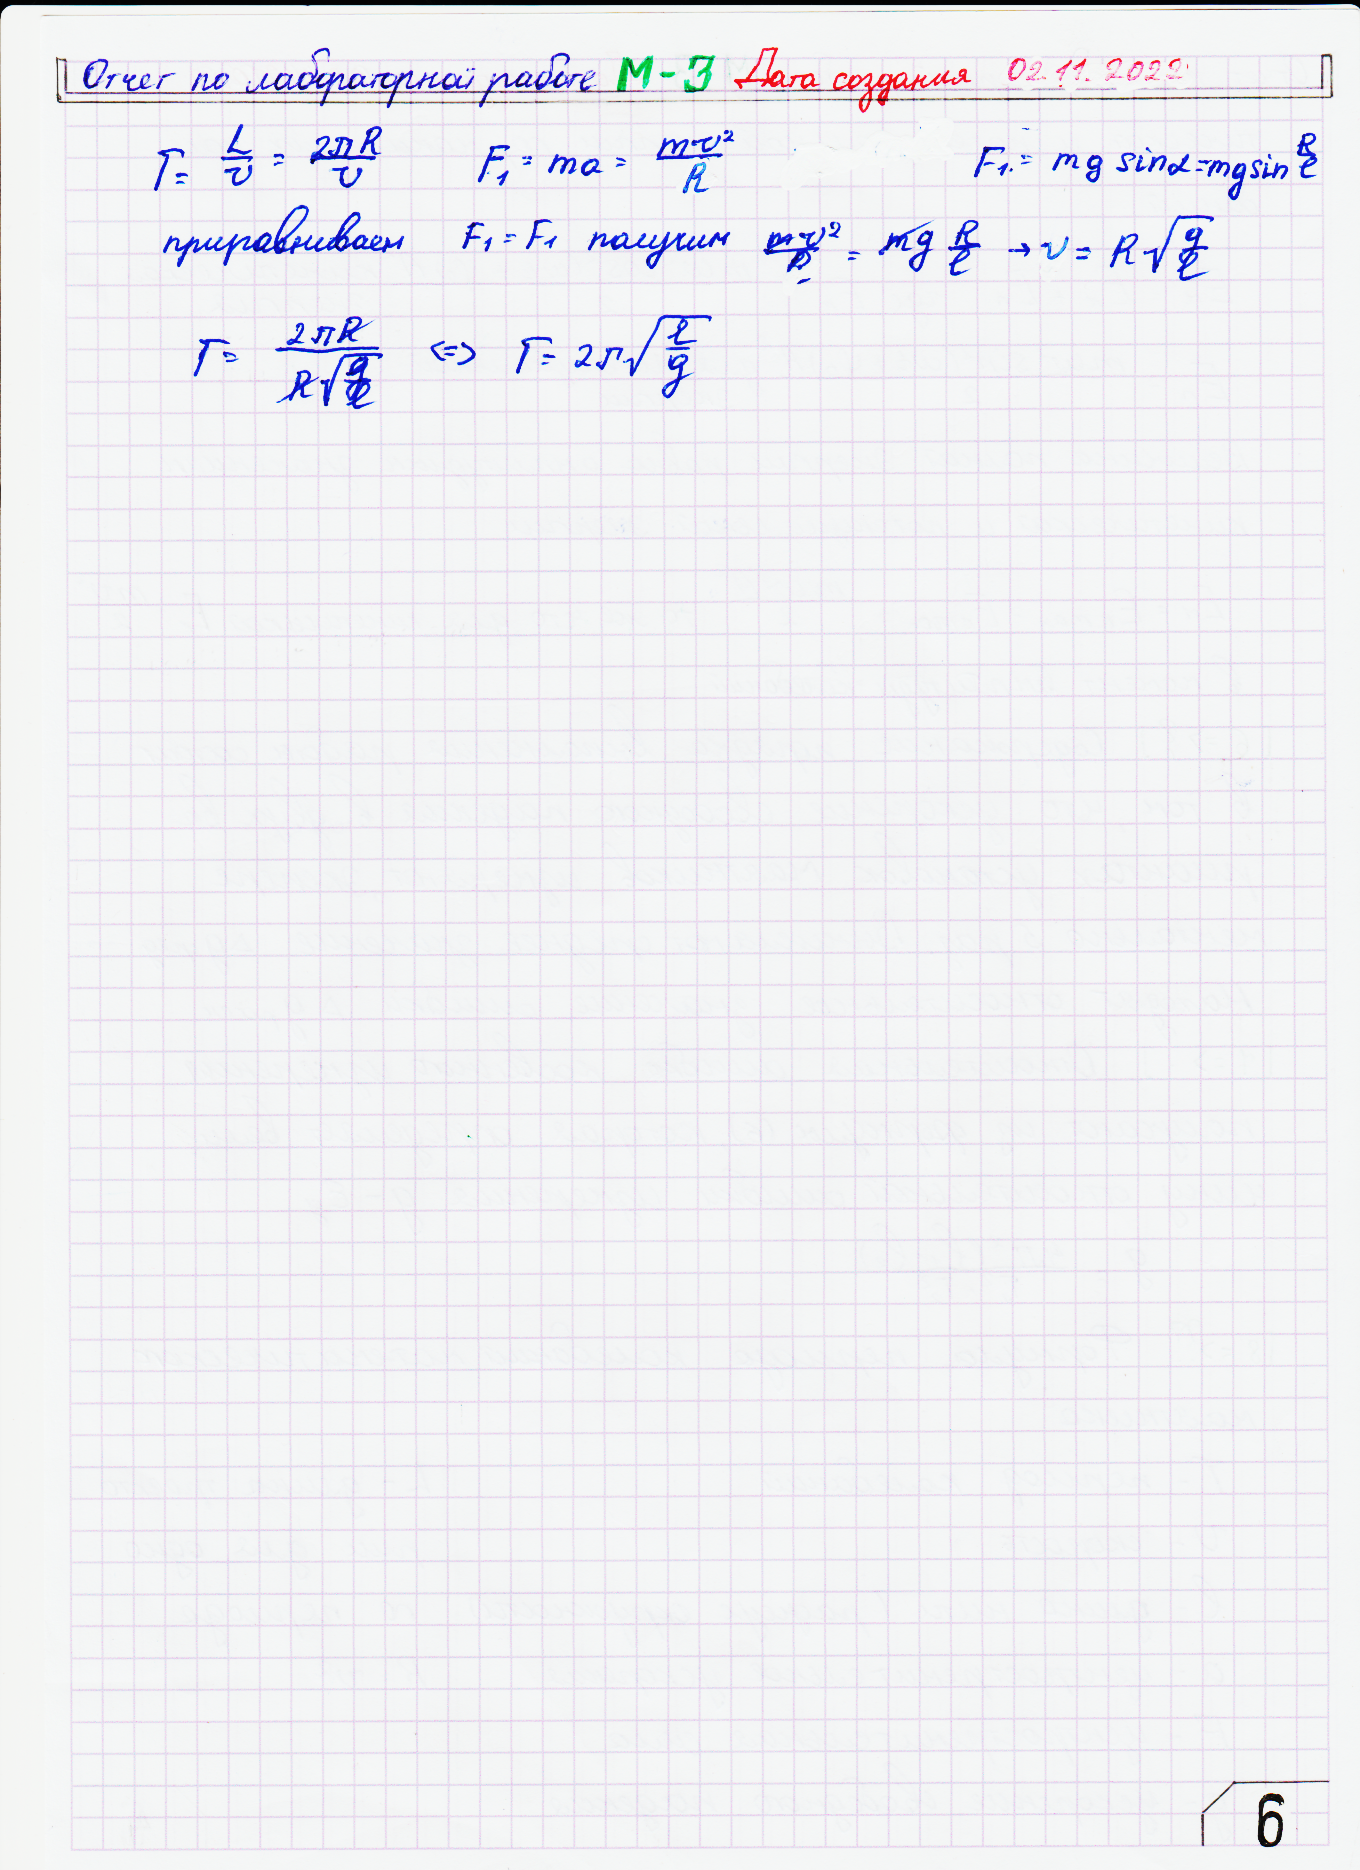 Отчет по лабораторной работе М-3 Дата создания 02.11.2022
T = L/v = 2πR/v F₁ = ma = mv²/R F₁ = mg sinα = mg sin R/l
приравниваем F₁ = F₁ получим mv²/R = mg R/l → v = R√(g/l)
T = 2πR/(R√(g/l)) <=> T = 2π√(l/g)
6